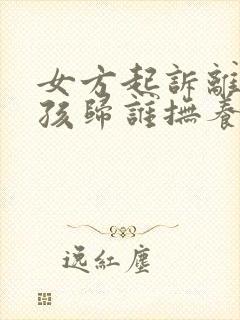 女方起訴離
孩歸誰撫養
逸紅塵